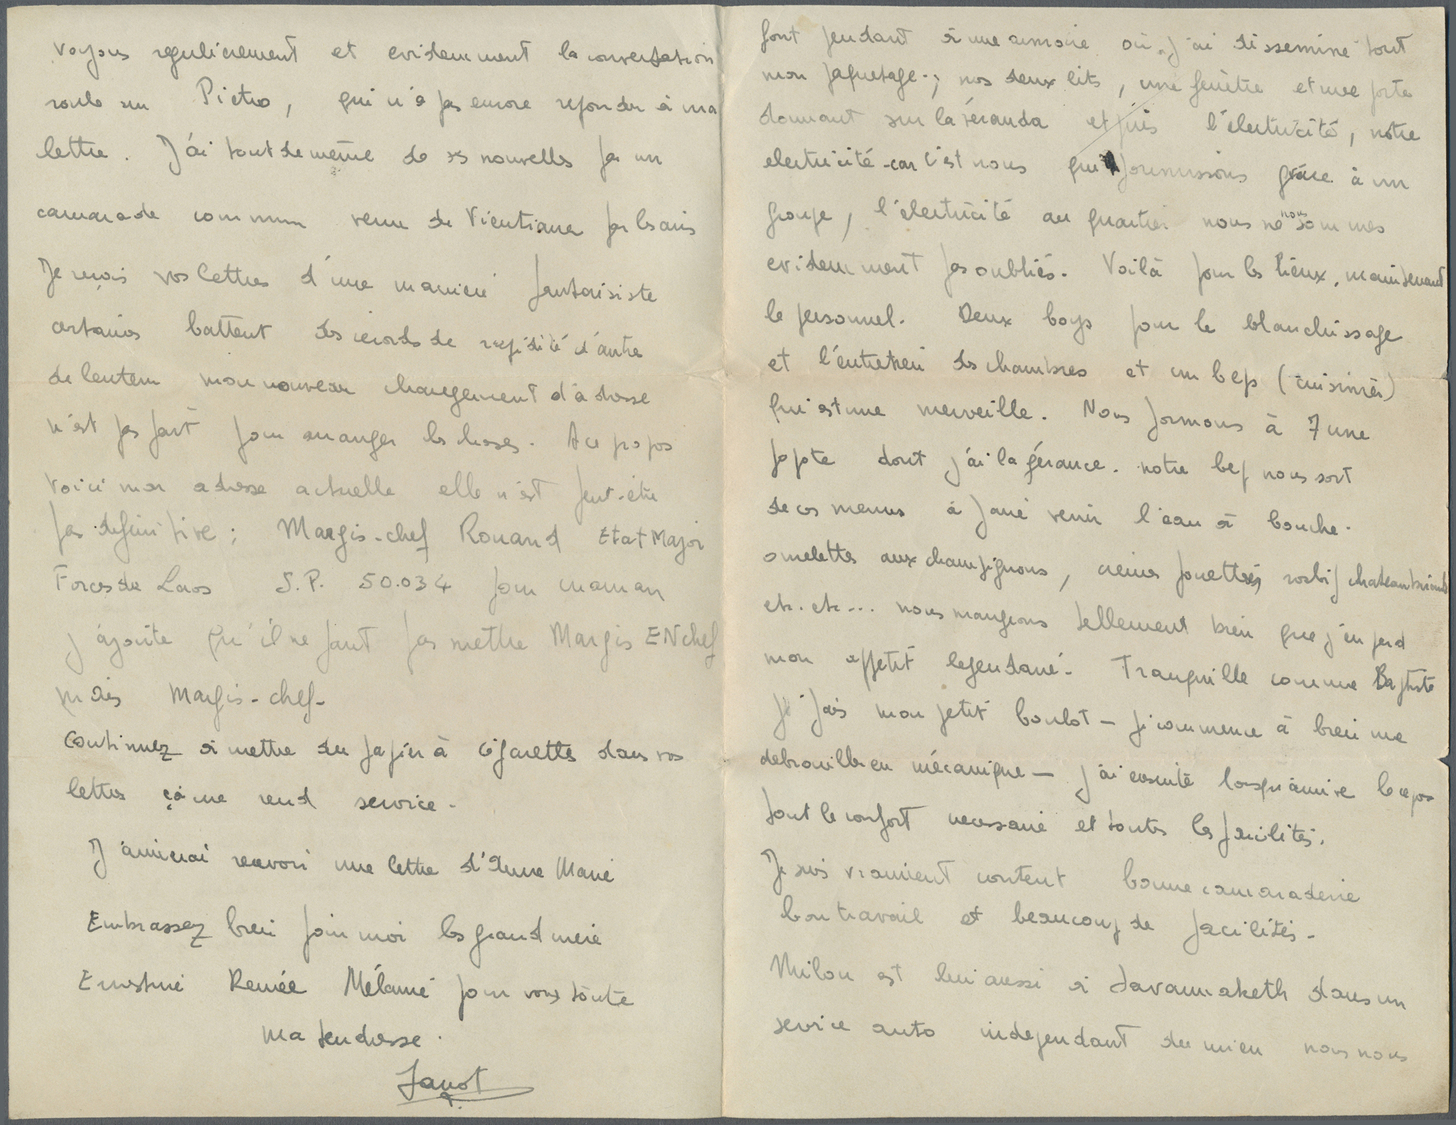 voyons regulierement et evidemment la conversation
roule sur Pietro, qui n'a pas encore repondu à ma
lettre. J'ai tout de même de ses nouvelles par un
camarade commun venu de Vientiane par les airs
Je reçois vos lettres d'une maniere fantaisiste
certaines battent des records de rapidité d'autre
de lenteur mon nouveau changement d'adresse
n'est pas fait pour arranger les choses. A ce propos
voici mon adresse actuelle elle n'est peut-être
pas definitive ; Margis-chef Rouand Etat Major
Forces du Laos S.P. 50.034 pour maman
j'ajoute qu'il ne faut pas mettre Margis EN chef
mais Margis-chef.
Continuez à mettre du papier à cigarettes dans vos
lettres çà me rend service.
J'aimerai recevoir une lettre d'Anne Marie
Embrassez bien pour moi les grand mere
Ernestine Renée Mélanie pour vous toute
ma tendresse.
Janot
font pendant à une armoire où j'ai disseminé tout
mon paquetage ; nos deux lits, une fenêtre et une porte
donnant sur la véranda et puis l'electricité, notre
electricité car c'est nous qui fournissons grâce à un
groupe, l'électricité au quartier nous ne nous sommes
evidemment pas oubliés. Voilà pour les lieux, maintenant
le personnel. Deux boys pour le blanchissage
et l'entretien des chambres et un bep (cuisinier)
qui est une merveille. Nous formons à 7 une
popote dont j'ai la gérance. notre bep nous sort
de ces menus à faire venir l'eau à bouche.
omelettes aux champignons, cremes fouettées, rosbif chateaubriand
etc. etc... nous mangeons tellement bien que j'en perd
mon appetit legendaire. Tranquille comme Baptiste
je fais mon petit boulot – je commence à bien me
debrouiller en mécanique – j'ai ensuite lorsqu'arrive le repos
tout le confort necessaire et toutes les facilités.
Je suis vraiment content bonne camaraderie
bon travail et beaucoup de facilités.
Milou est lui aussi à Savannaketh dans un
service auto independant du mien nous nous